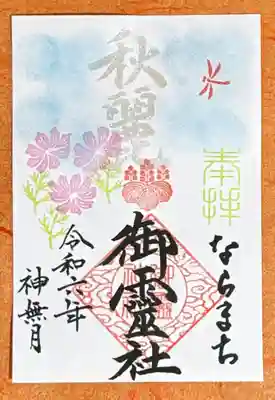 秋麗
奉拝
ならまち
御霊社
令和六年
神無月